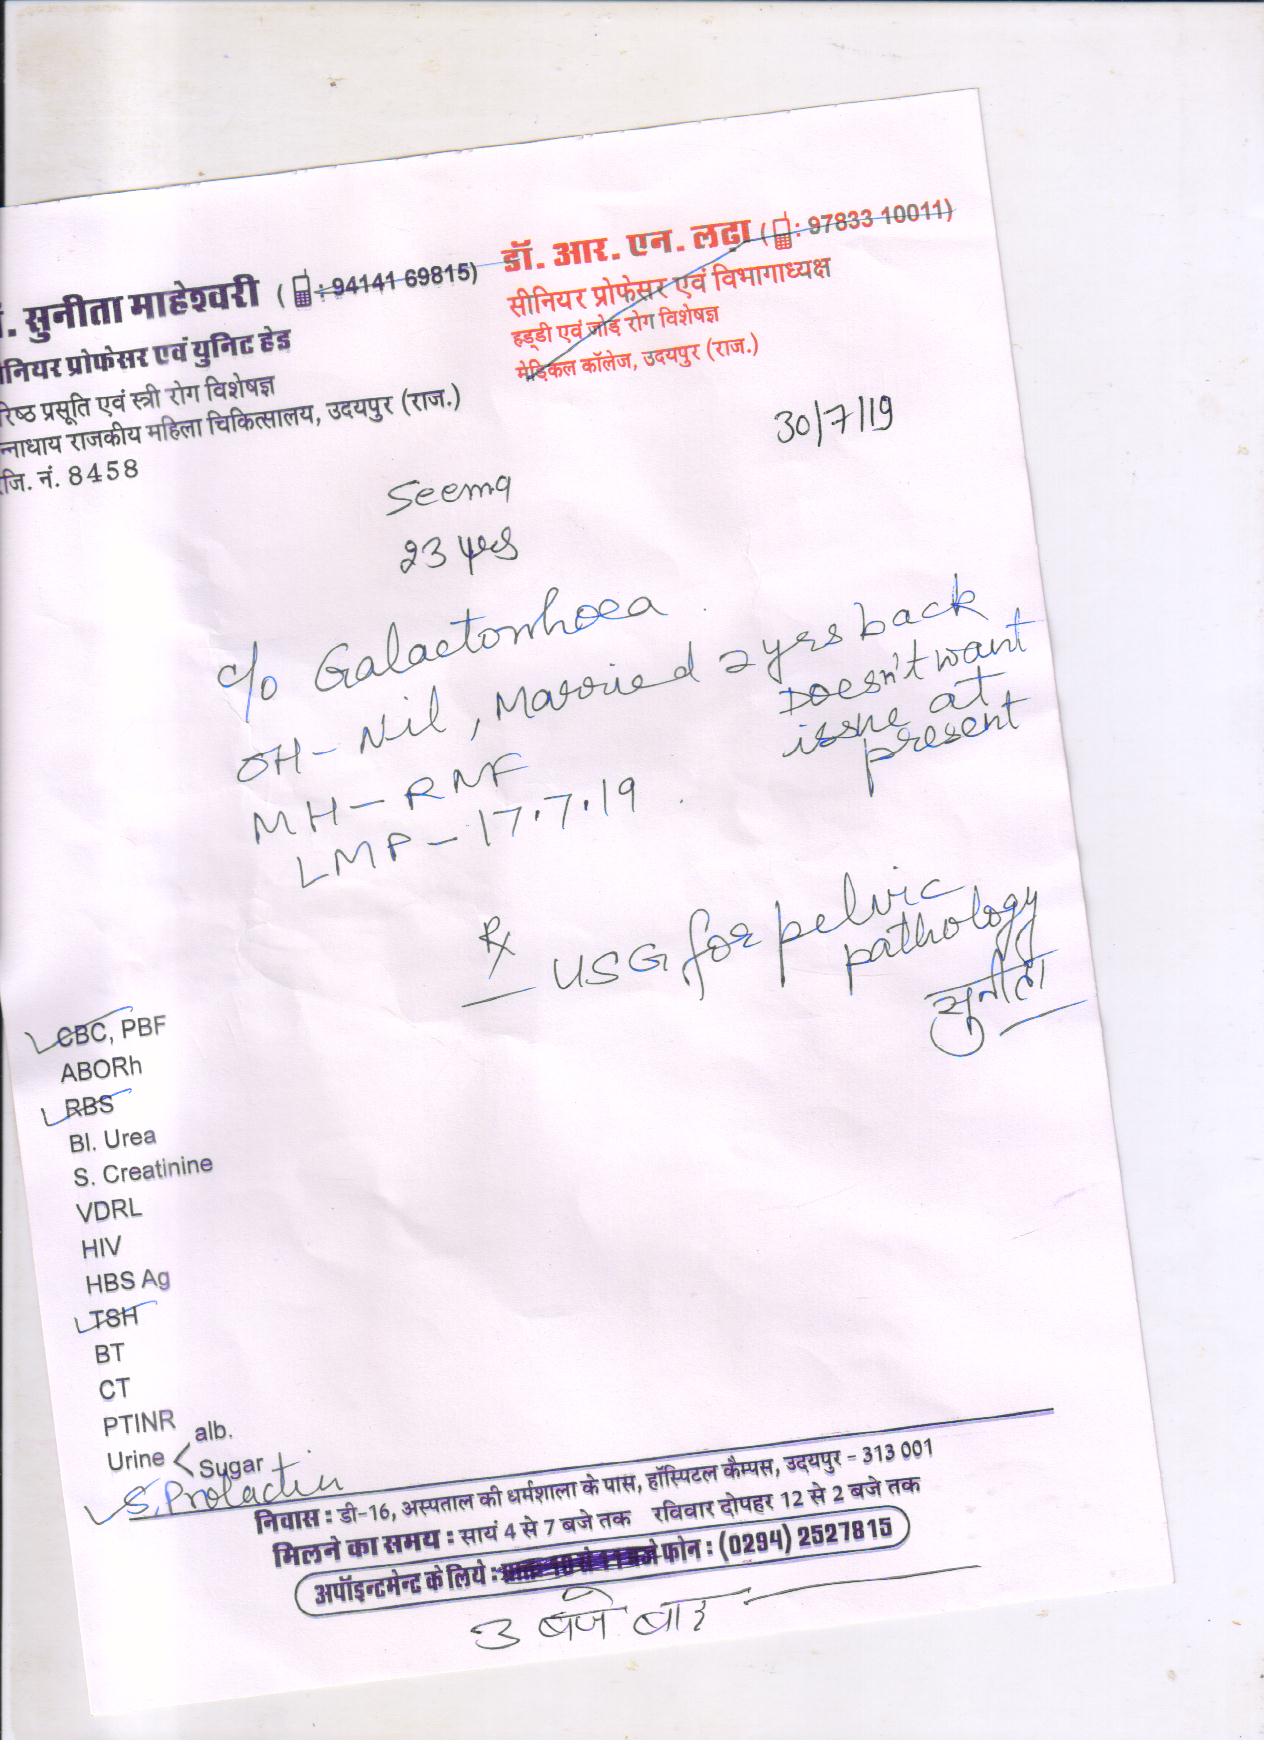 . सुनीता माहेश्वरी ( : 94141 69815)
नियर प्रोफेसर एवं युनिट हेड
रिष्ठ प्रसूति एवं स्त्री रोग विशेषज्ञ
न्नाधाय राजकीय महिला चिकित्सालय, उदयपुर (राज.)
जि. नं. 8458
डॉ. आर. एन. लढा ( : 97833 10011)
सीनियर प्रोफेसर एवं विभागाध्यक्ष
हड्डी एवं जोड़ रोग विशेषज्ञ
मेडिकल कॉलेज, उदयपुर (राज.)
30/7/19
Seema
23 yrs
c/o Galactorrhoea
OH - Nil, Married 2 yrs back
Doesn't want
issue at
present
MH - RNF
LMP - 17.7.19
Rx
USG for pelvic
pathology
सुनीता
CBC, PBF
ABORh
RBS
Bl. Urea
S. Creatinine
VDRL
HIV
HBS Ag
TSH
BT
CT
PTINR
Urine < alb.
Sugar
S. Prolactin
निवास : डी-16, अस्पताल की धर्मशाला के पास, हॉस्पिटल कैम्पस, उदयपुर - 313 001
मिलने का समय : सायं 4 से 7 बजे तक रविवार दोपहर 12 से 2 बजे तक
अपॉइन्टमेन्ट के लिये : प्रातः 10 से 11 बजे फोन : (0294) 2527815
3 बजे बाद